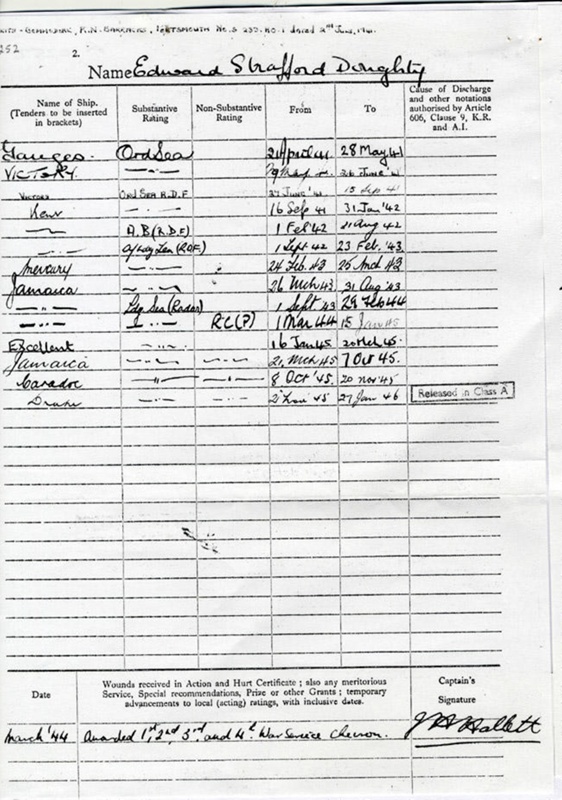 R.N. BARRACKS, PORTSMOUTH No. S 252. No. 1 dated 2nd June, 1941.
252
2.
Name Edward Strafford Doughty
Name of Ship. (Tenders to be inserted in brackets) Substantive Rating Non-Substantive Rating From To Cause of Discharge and other notations authorised by Article 606, Clause 9, K.R. and A.I.
Ganges. Ord Sea 21 April 41 28 May 41
VICTORY. —·— 29 May 41 26 JUNE 41
VICTORY ORD SEA R.D.F 27 JUNE '41 15 Sep 41
Kent —·— 16 Sep 41 31 Jan '42
—·— A.B (R.D.F) 1 Feb '42 31 Aug 42
—·— A/Ldg Sea (RDF) 1 Sept 42 23 Feb. '43
Mercury —·— 24 Feb. 43 25 Mch 43
Jamaica —·— 26 Mch 43 31 Aug '43
—·— Ldg Sea (Radar) 1 Sept. '43 29 Feb 44
—·— —·— R.C.(P) 1 Mar 44 15 Jan 45
Excellent —·— 16 Jan 45 20 Mch 45.
Jamaica —·— —·— 21 Mch 45 7 Oct 45.
Caradoc —·— —·— 8 Oct '45 20 Nov '45
Drake —·— —·— 21 Nov '45 27 Jan 46 Released in Class A
Date Wounds received in Action and Hurt Certificate ; also any meritorious Service, Special recommendations, Prize or other Grants ; temporary advancements to local (acting) ratings, with inclusive dates. Captain's Signature
March '44 Awarded 1st, 2nd, 3rd. and 4th War Service Chevron. Hallett